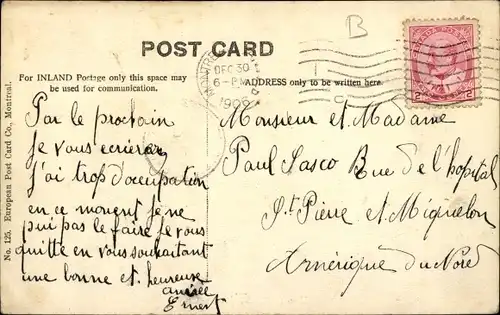 B
POST CARD
CANADA POSTAGE
MONTREAL
DEC 30
6-PM
1906
For INLAND Postage only this space may
be used for communication.
ADDRESS only to be written here.
No. 125. European Post Card Co., Montreal.
Par le prochain
je vous ecrierai
j'ai trop d'occupation
en ce moment je ne
pui pas le faire je vous
quitte en vous souhaitant
une bonne et heureuse
année
Ernest
Monsieur et Madame
Paul Sasco Rue de l'hopital
St Pierre et Miquelon
Amérique du Nord